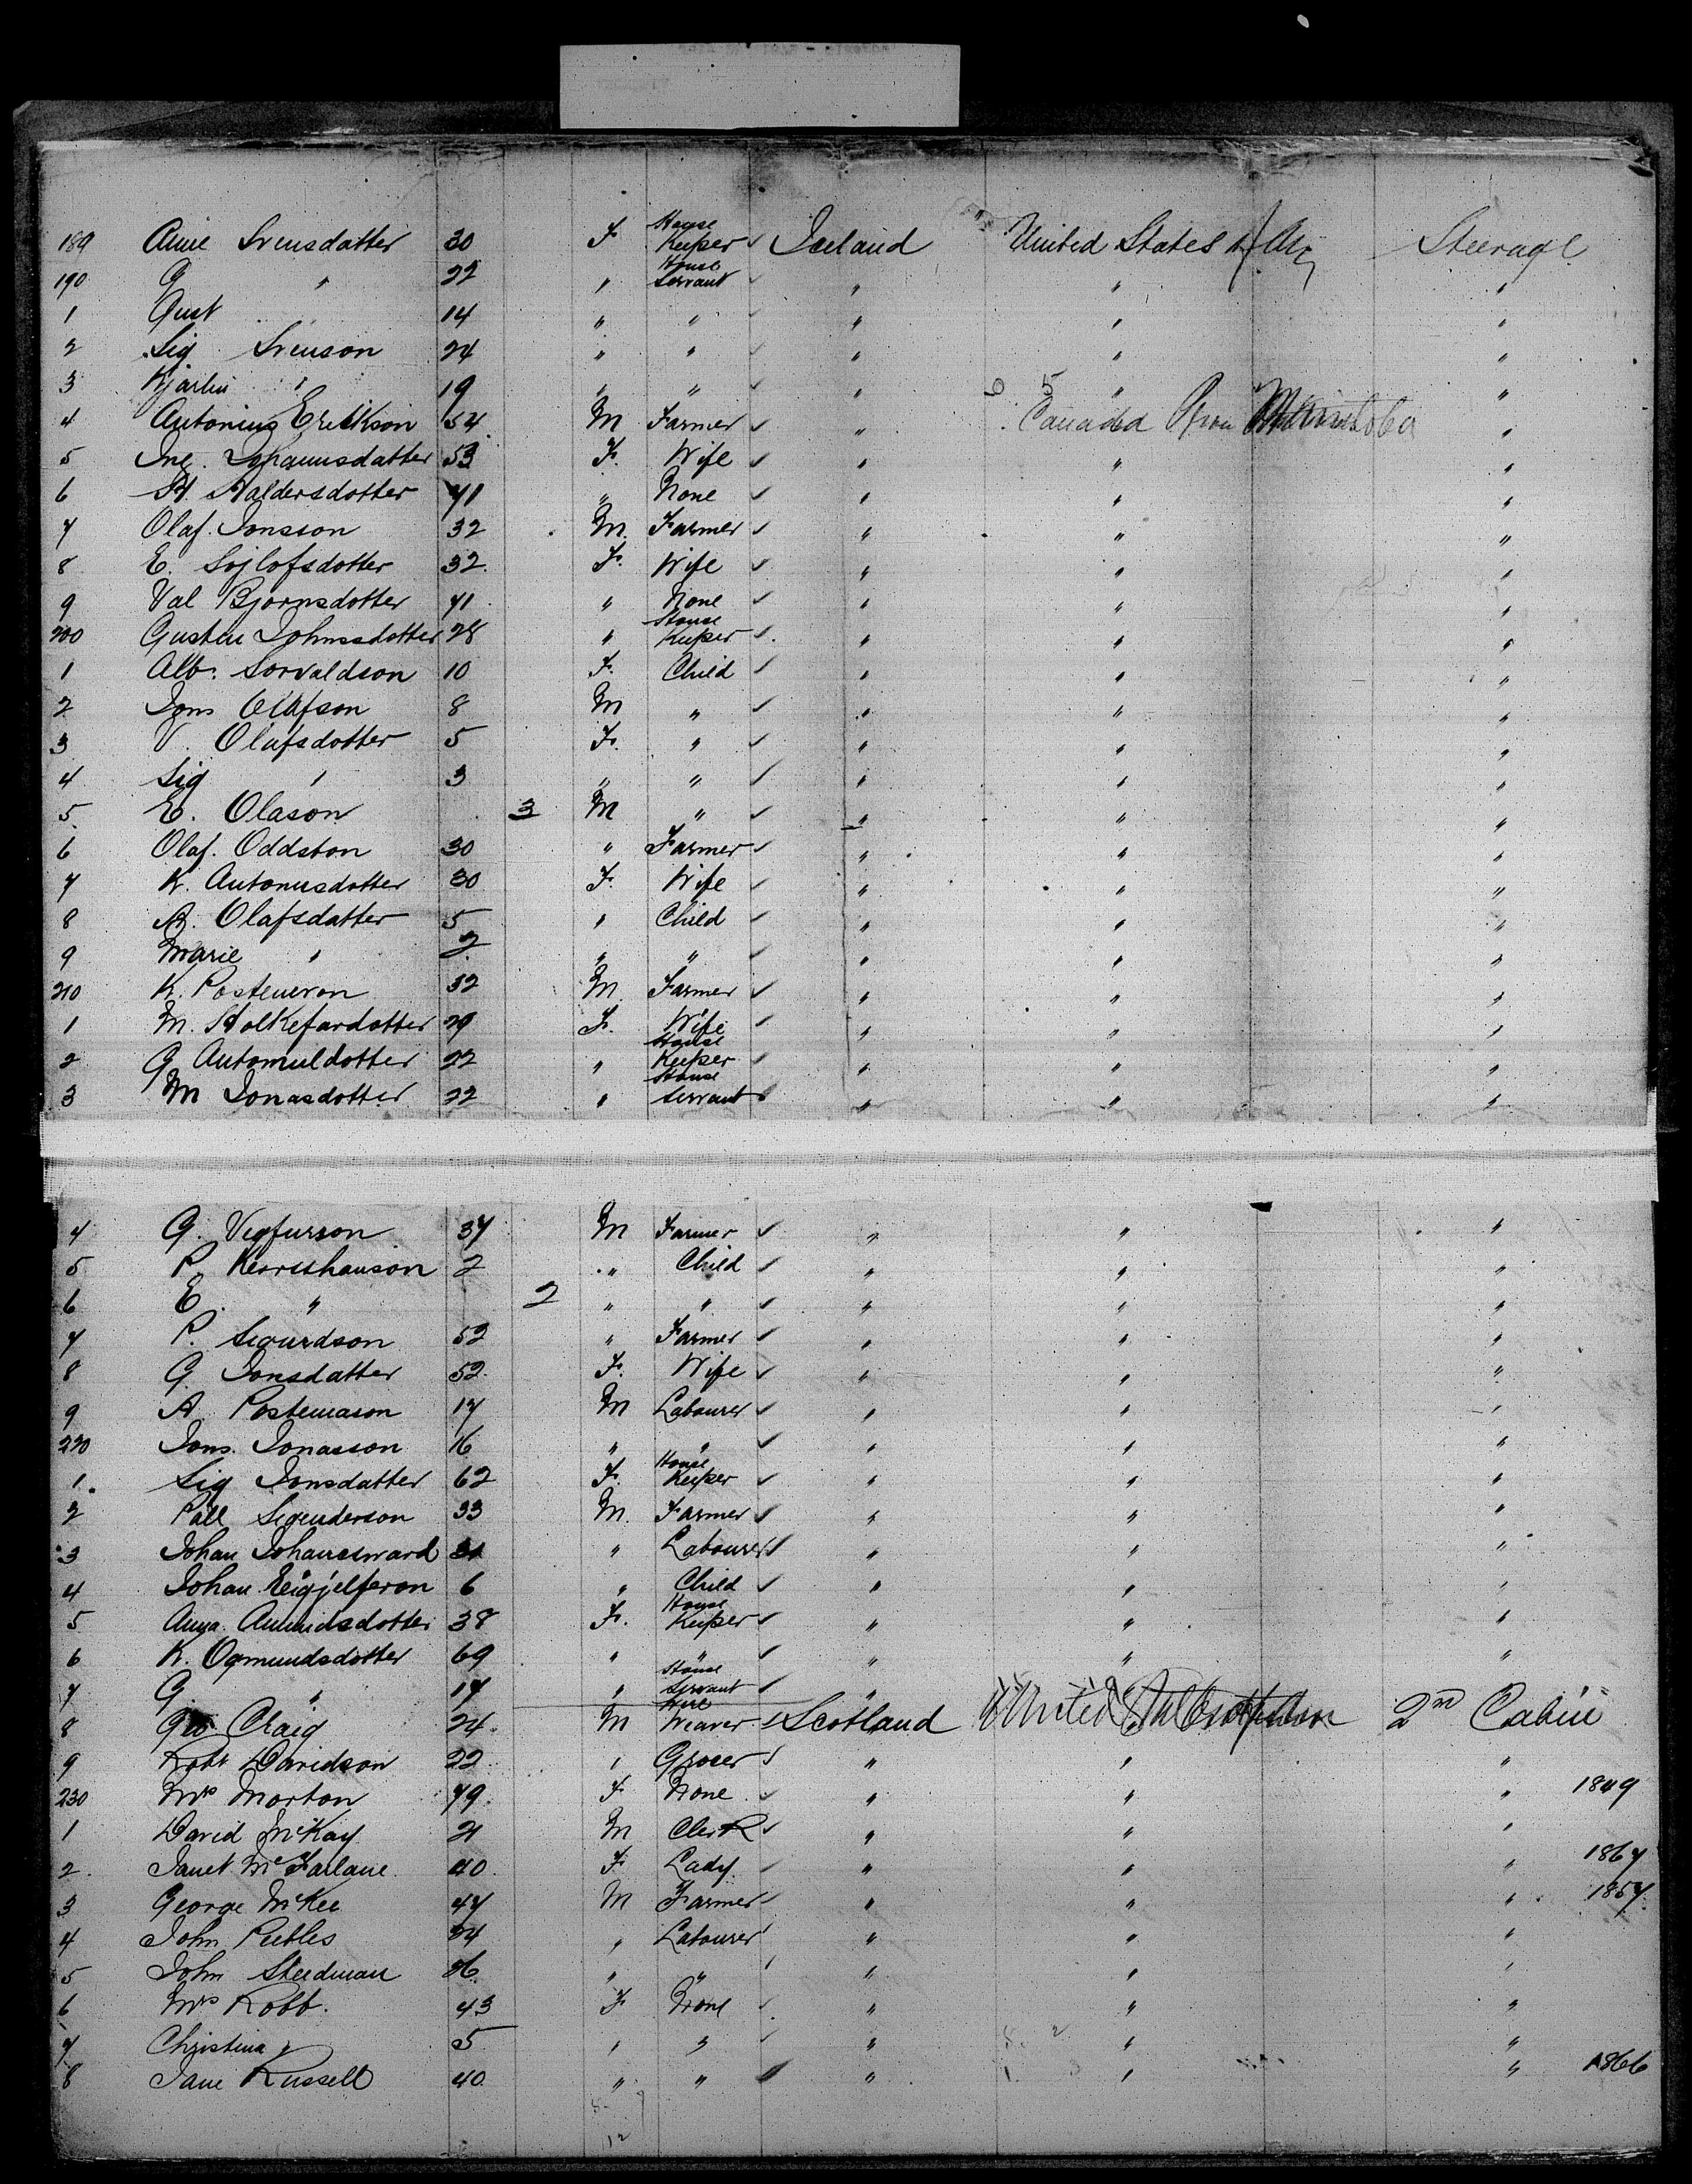 189 Anne Svensdatter 30 F House Keeper ✓ Iceland United States of Am Steerage
190 G " 22 " House Servant ✓ " " "
1 Gust 14 " " ✓ " " "
2 Sig Svenson 24 " " ✓ " " "
3 Kjarlin " 19 " " ✓ " " "
4 Antonius Erikson 54 M Farmer ✓ " Canada Prov Manitoba "
5 Ing. Johannsdatter 53 F. Wife ✓ " " "
6 H. Haldersdotter 71 " None ✓ " " "
7 Olaf. Jonsson 32 M. Farmer ✓ " " "
8 E. Sojlofsdotter 32. F. Wife ✓ " " "
9 Val Bjornsdotter 71 " None ✓ " " "
200 Gusten Johnssdotter 28 " House Keeper ✓ " " "
1 Alb. Sorvaldson 10 F. Child ✓ " " "
2 Jons Olafson 8 M " ✓ " " "
3 V. Olafsdotter 5 F. " ✓ " " "
4 Sig " 3 " " ✓ " " "
5. E. Olason 3 M " ✓ " " "
6 Olaf. Oddston 30 " Farmer ✓ " " "
7 K. Antonusdotter 30 F. Wife ✓ " " "
8 A. Olafsdatter 5 " Child ✓ " " "
9 Marie " 2 " " ✓ " " "
210 K. Posteneron 32 M. Farmer ✓ " " "
1 M. Holkefardotter 29 F. Wife ✓ " " "
2 G Automuldotter 22 " House Keeper ✓ " " "
3 M Jonasdotter 22 " House Servant " " "
4 G. Vegfurson 37 M Farmer ✓ " " "
5 P. Kerrsthanson 2 " Child ✓ " " "
6 E. " 2 " " ✓ " " "
7 P. Sigurdson 52 " Farmer ✓ " " "
8 G Jonsdatter 52. F. Wife ✓ " " "
9 A Postemason 17 M Labourer ✓ " " "
220 Jons. Jonasson 16 " " ✓ " " "
1. Sig Jonsdatter 62 F. House Keeper ✓ " " "
2 Pall Sigenderson 33 M. Farmer ✓ " " "
3 Johan Johanesward " Labourer ✓ " " "
4 Johan Eigjelferon 6 " Child ✓ " " "
5 Anna. Amundsdotter 38 F. House Keeper ✓ " " "
6 K. Ogmundsdotter 69 " " ✓ " " "
7 G " 17 " House Servant ✓ " "
8 Geo Craig 24. M Wire Weaver ✓ Scotland United 2nd Cabin
9 Robt Davidson 22 " Grocer ✓ " " "
230 Mrs Morton 79. F None ✓ " " " 1849
1 David McKay 21 M Clerk ✓ " " "
2. Janet McFarlane 40. F Lady ✓ " " " 1867
3 George McKee 47 M Farmer ✓ " " " 1857.
4 John Peebles 24 " Labourer ✓ " " "
5 John Steedman 26 " " ✓ " " "
6 Mrs Robb. 43 F None ✓ " " "
7 Christina " 5 " " ✓ " " "
8 Jane Russell 40. " " " " " 1866